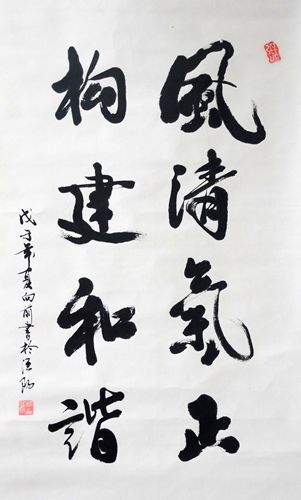 風清氣正
构建和谐
戊子年夏向前書於涇陽